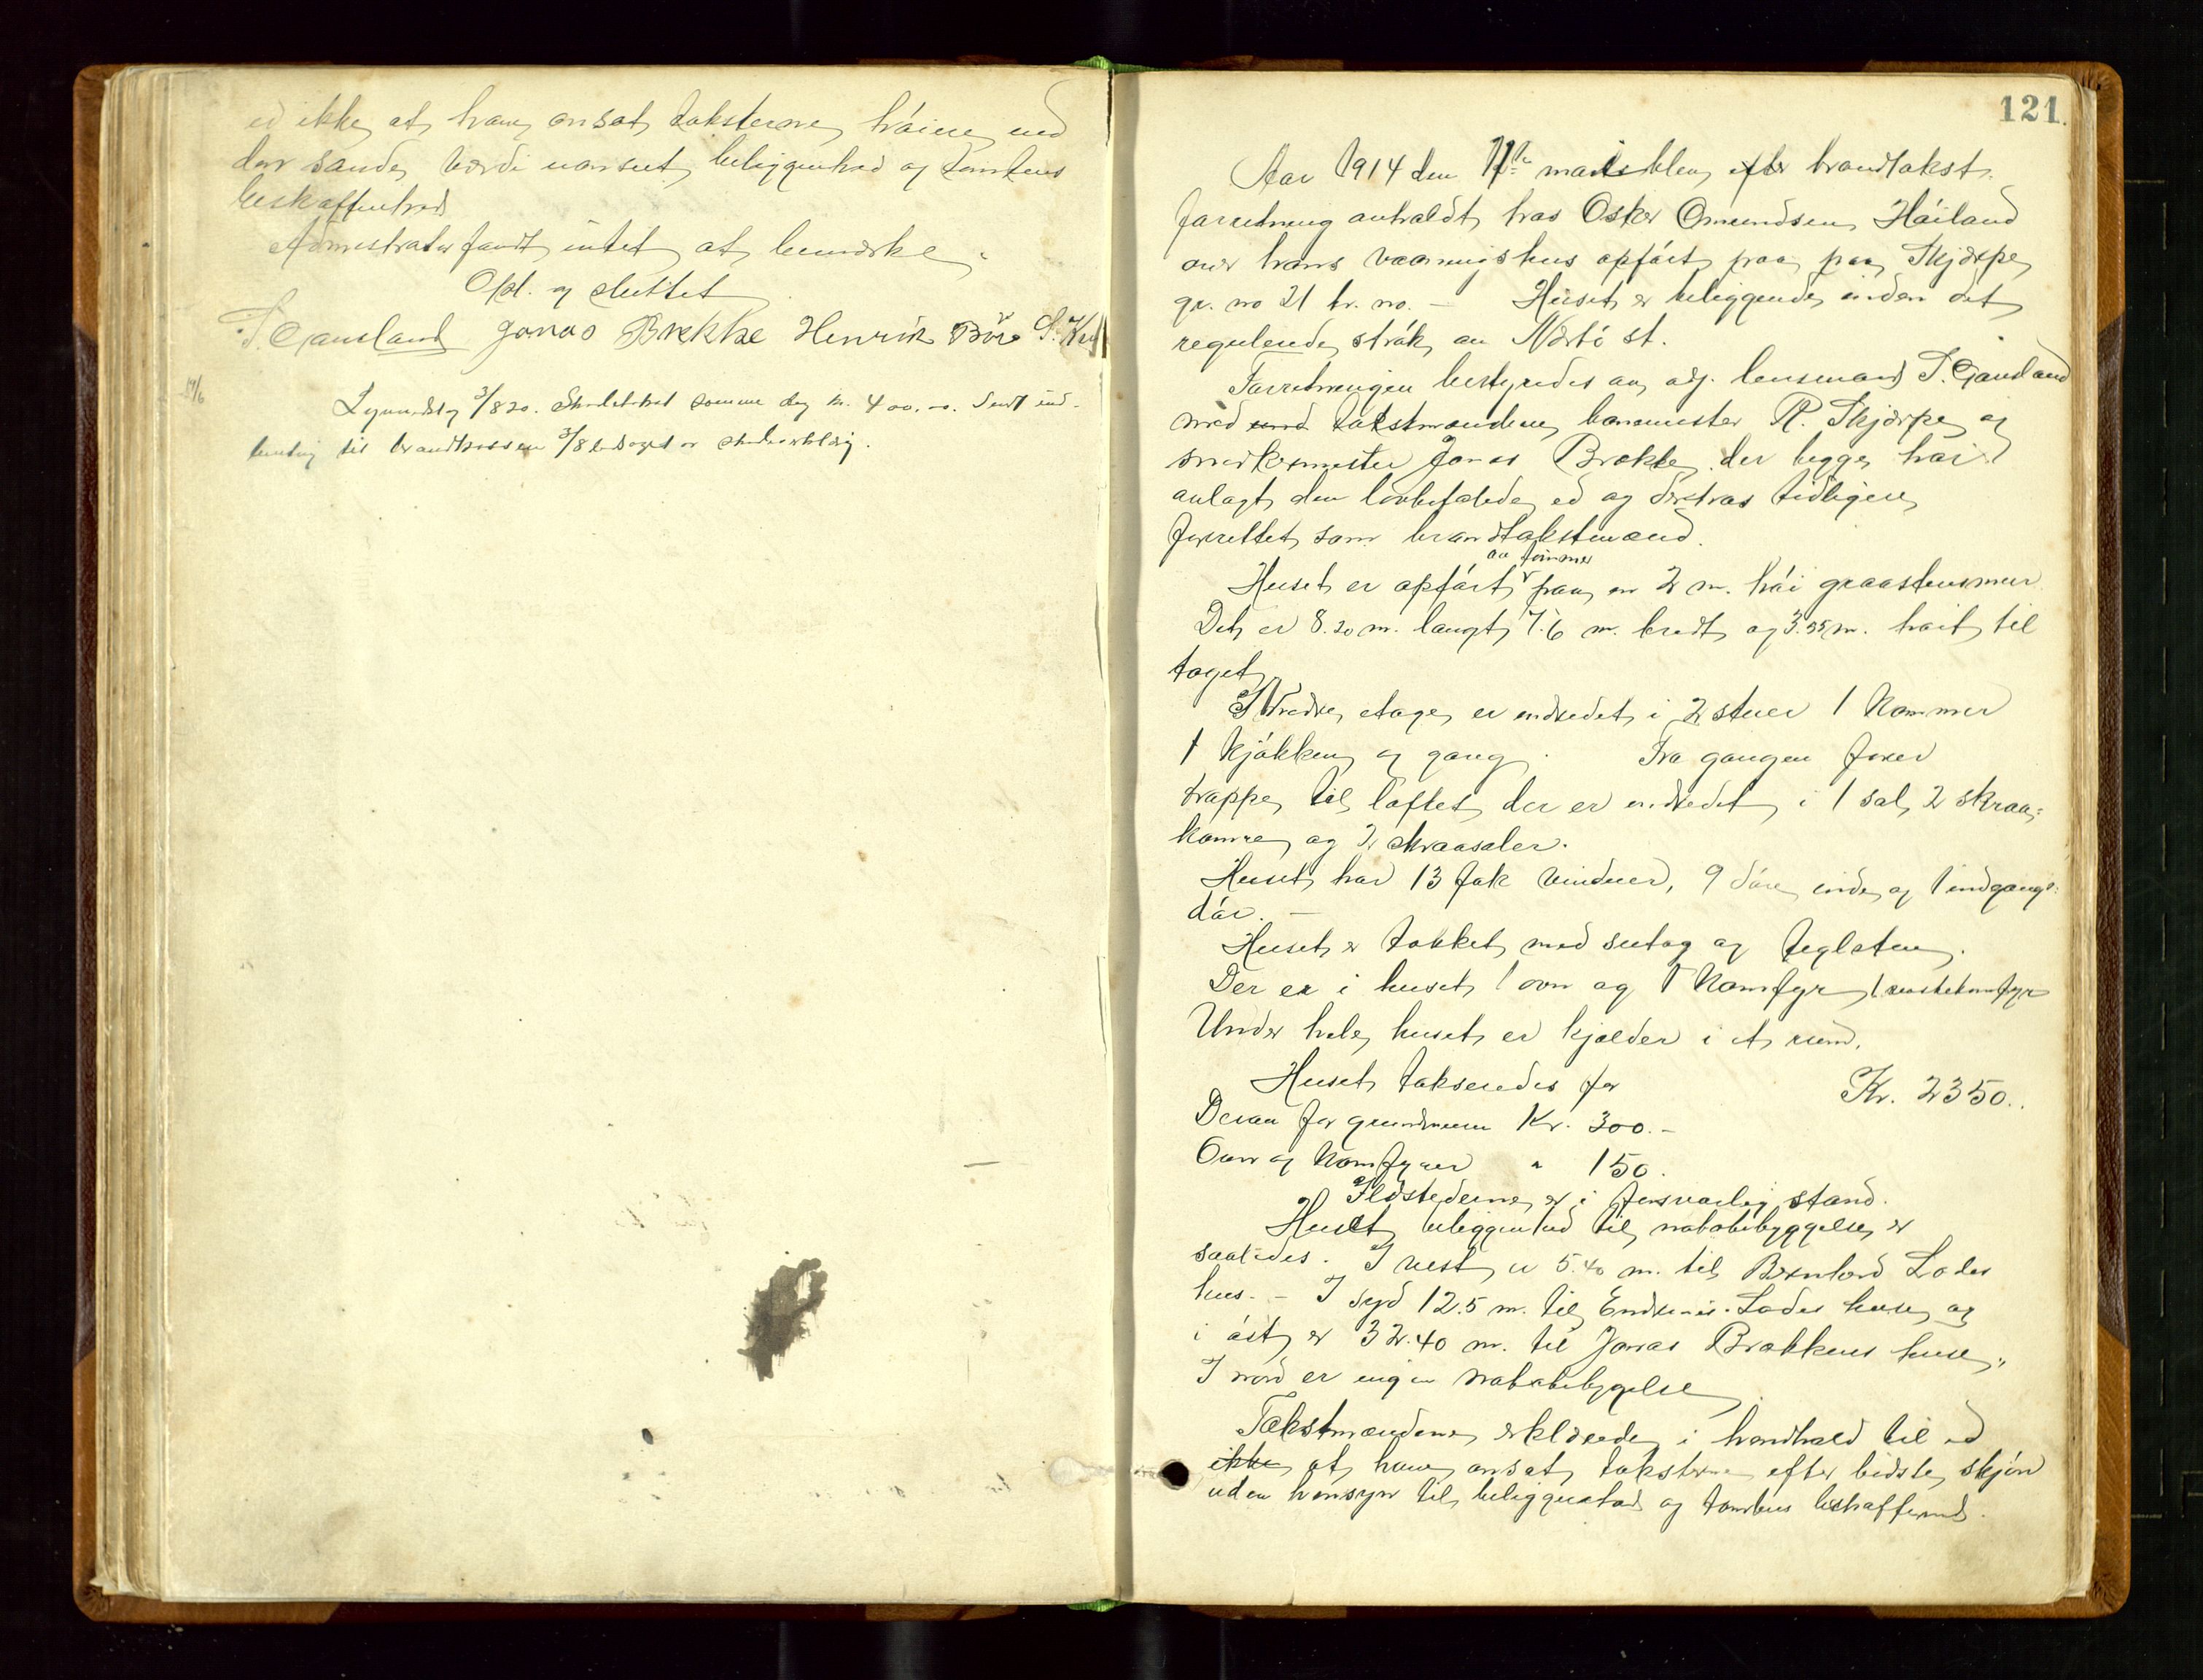 ed ikke at have ansat taksterne høiere end
den sande værdi uanset beliggenhed og tomtens
beskaffenhed
Administrator fandt intet at bemærke.
Opl. og sluttet
T. Gausland Jonas Brekke Henrik Børe S.
14/6
3/8 20. Skadetakst samme dag kr. 400.00. Sendt ind-
til brandkassen 3/8
121.
Aar 1914 den 11te mai blev efter brandtakst
forretning avholdt hos Oskar Omundsen Høiland
over hans vaaningshus opført paa paa Skjærpe
gr. no 21 br. no. – Huset er beliggende inden det
regulerede strøk av Nærbø st.
Forretningen bestyredes av adj. lensmand T. Gausland
med med takstmændene banemester R. Skjærpe og
snedkermester Jonas Brekke der begge har
avlagt den lovbefalede ed og dertros tidligere
forrettet som brandtakstmænd.
av tømmer
Huset er opført paa en 2 m. høi graastensmur
Det er 8.20 m. langt 7.6 m. bredt og 3.55 m. høit til
taget.
I Nedre etage er indredet i 2 stuer 1 kammer
1 kjøkken og gang. Fra gangen fører
trappe til loftet der er indredet i 1 sal, 2 skraa-
kamre og 2 skraasaler.
Huset har 13 fak vinduer, 9 døre inde og 1 indgangs-
dør. –
Huset er tækket med sutag og teglsten.
Der er i huset 1 ovn og 1 Komfyr, 1 vaskekomfyr
Under hele huset er kjelder i et rum.
Huset takseredes for Kr. 2350..
Derav for grundmuren Kr. 300.–
Ovn og Komfyrer " 150.
Ildstederne er i forsvarlig stand.
Huset beliggenhed til nabobebyggelse er
saaledes. I vest er 5.40 m. til Lodes
hus. – I syd 12.5 m. til Lodes huse og
i øst er 32.40 m. til Jonas Brekkens huse,
I nord er ingen nabobebygelse
Takstmændene erklærede i henhold til ed
ikke at have ansat taksterne efter bedste skjøn
uden hensyn til beliggenhed og tomtens beskaffenhed.